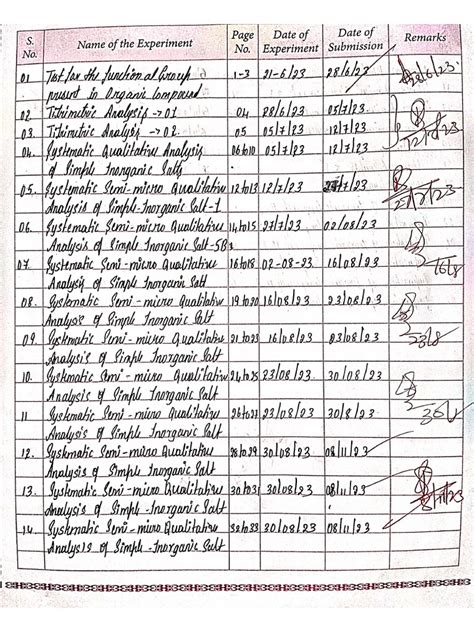 S. No. Name of the Experiment Page No. Date of Experiment Date of Submission Remarks
01 Test for the functional Group 1-3 21-6/23 28/6/23 28/6/23
present in Organic compound.
02 Titrimetric Analysis → 01 04 28/6/23 05/7/23
03. Titrimetric Analysis → 02. 05 05/7/23 12/7/23 12/7/23
04. Systematic Qualitative Analysis 06to10 05/7/23 12/7/23
of Simple Inorganic Salts
05. Systematic Semi-micro Qualitative 12to13 12/7/23 /7/23
Analysis of Simple-Inorganic Salt-1
06. Systematic Semi-micro Qualitative 14to15 27/7/23 02/08/23
Analysis of Simple Inorganic Salt-5B
07. Systematic Semi-micro Qualitative 16to18 02-08-23 16/08/23 16/8
Analysis of Simple Inorganic Salt
08. Systematic Semi-micro Qualitative 19to20 16/08/23 23/08/23
Analysis of Simple Inorganic Salt
09. Systematic Semi-micro Qualitative 21to23 16/08/23 23/08/23 23/8
Analysis of Simple Inorganic Salt
10. Systematic Semi-micro Qualitative 24to25 23/08/23 30/08/23
Analysis of Simple Inorganic Salt
11 Systematic Semi-micro Qualitative 26to27 23/08/23 30/8/23 30/8
Analysis of Simple Inorganic Salt
12. Systematic Semi-micro Qualitative 28to29 30/08/23 08/11/23
Analysis of Simple Inorganic Salt
13. Systematic Semi-micro Qualitative 30to31 30/08/23 08/11/23 8/11/23
Analysis of Simple-Inorganic Salt
14. Systematic Semi-micro Qualitative 32to33 30/08/23 08/11/23
Analysis of Simple-Inorganic Salt